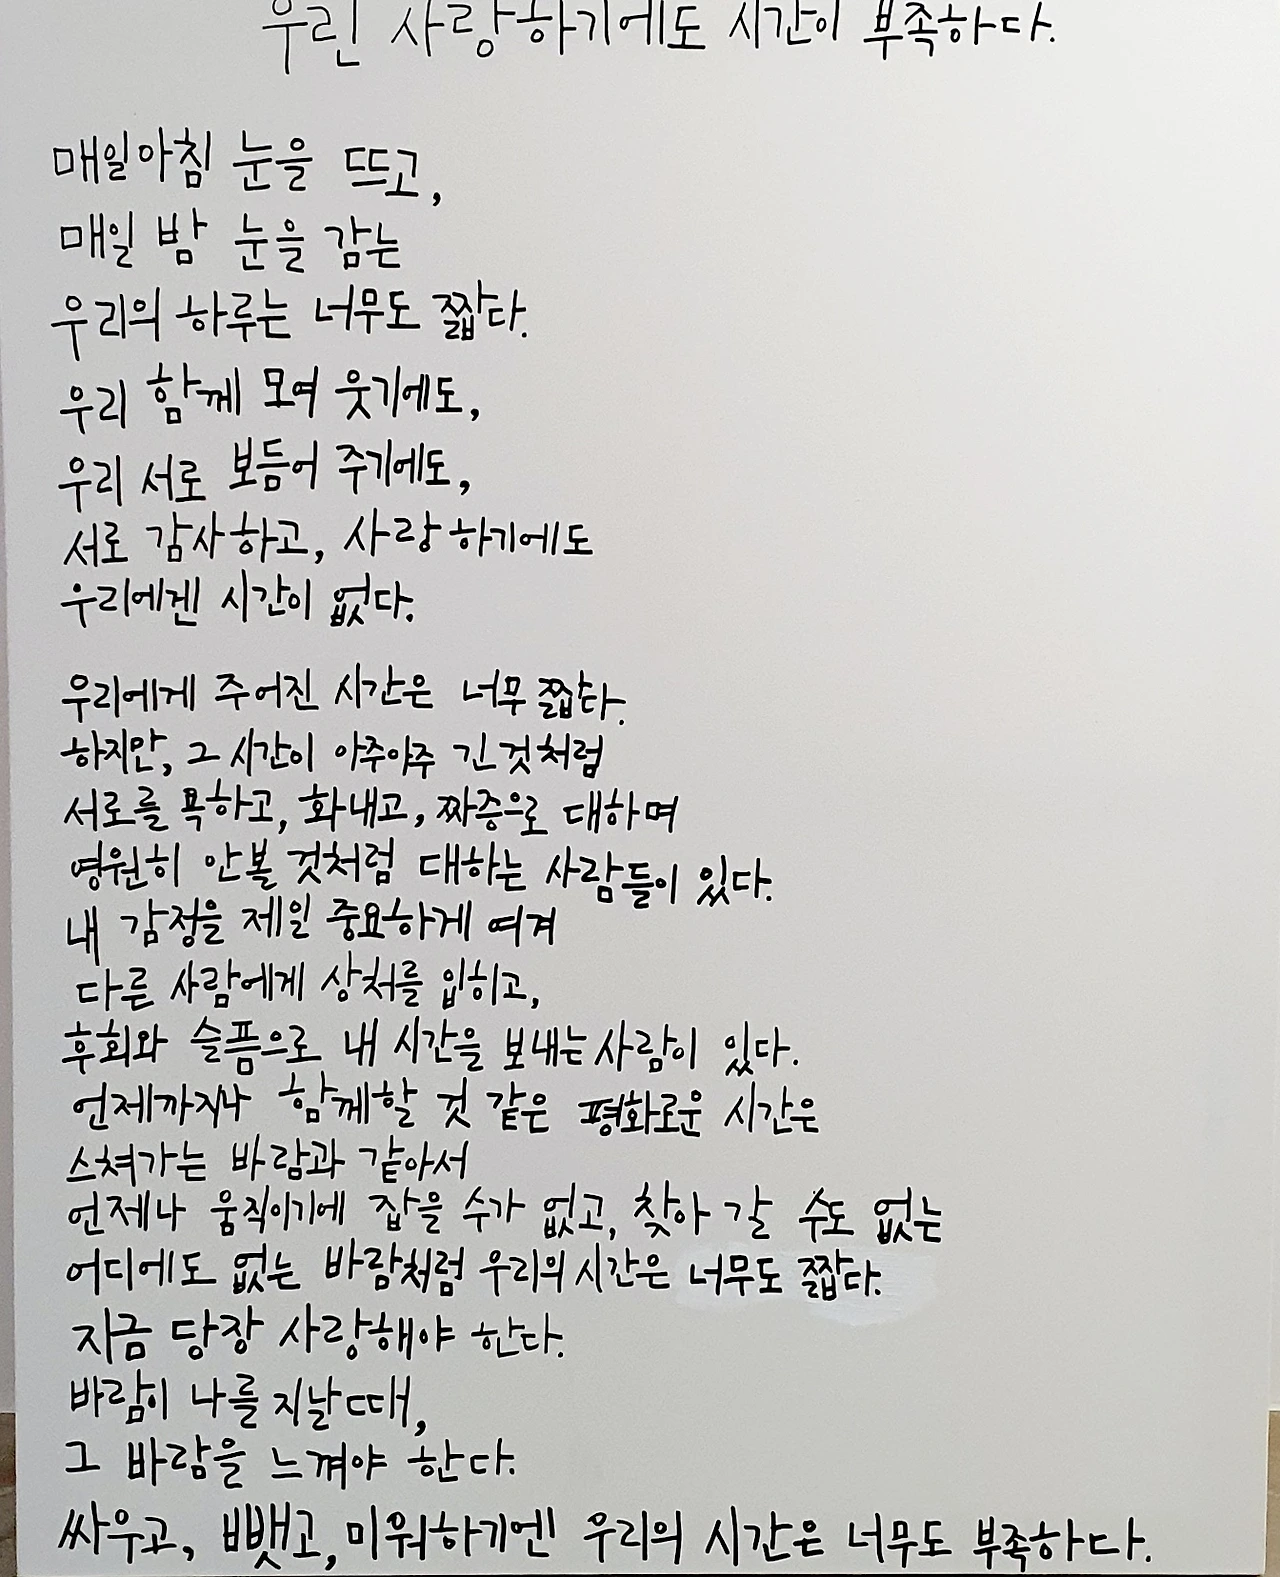 우린 사랑하기에도 시간이 부족하다.
매일아침 눈을 뜨고,
매일 밤 눈을 감는
우리의 하루는 너무도 짧다.
우리 함께 모여 웃기에도,
우리 서로 보듬어 주기에도,
서로 감사하고, 사랑하기에도
우리에겐 시간이 없다.
우리에게 주어진 시간은 너무 짧다.
하지만, 그 시간이 아주아주 긴 것처럼
서로를 욕하고, 화내고, 짜증으로 대하며
영원히 안볼 것처럼 대하는 사람들이 있다.
내 감정을 제일 중요하게 여겨
다른 사람에게 상처를 입히고,
후회와 슬픔으로 내 시간을 보내는 사람이 있다.
언제까지나 함께할 것 같은 평화로운 시간은
스쳐가는 바람과 같아서
언제나 움직이기에 잡을 수가 없고, 찾아 갈 수도 없는
어디에도 없는 바람처럼 우리의 시간은 너무도 짧다.
지금 당장 사랑해야 한다.
바람이 나를 지날 때,
그 바람을 느껴야 한다.
싸우고, 뺏고, 미워하기엔 우리의 시간은 너무도 부족하다.